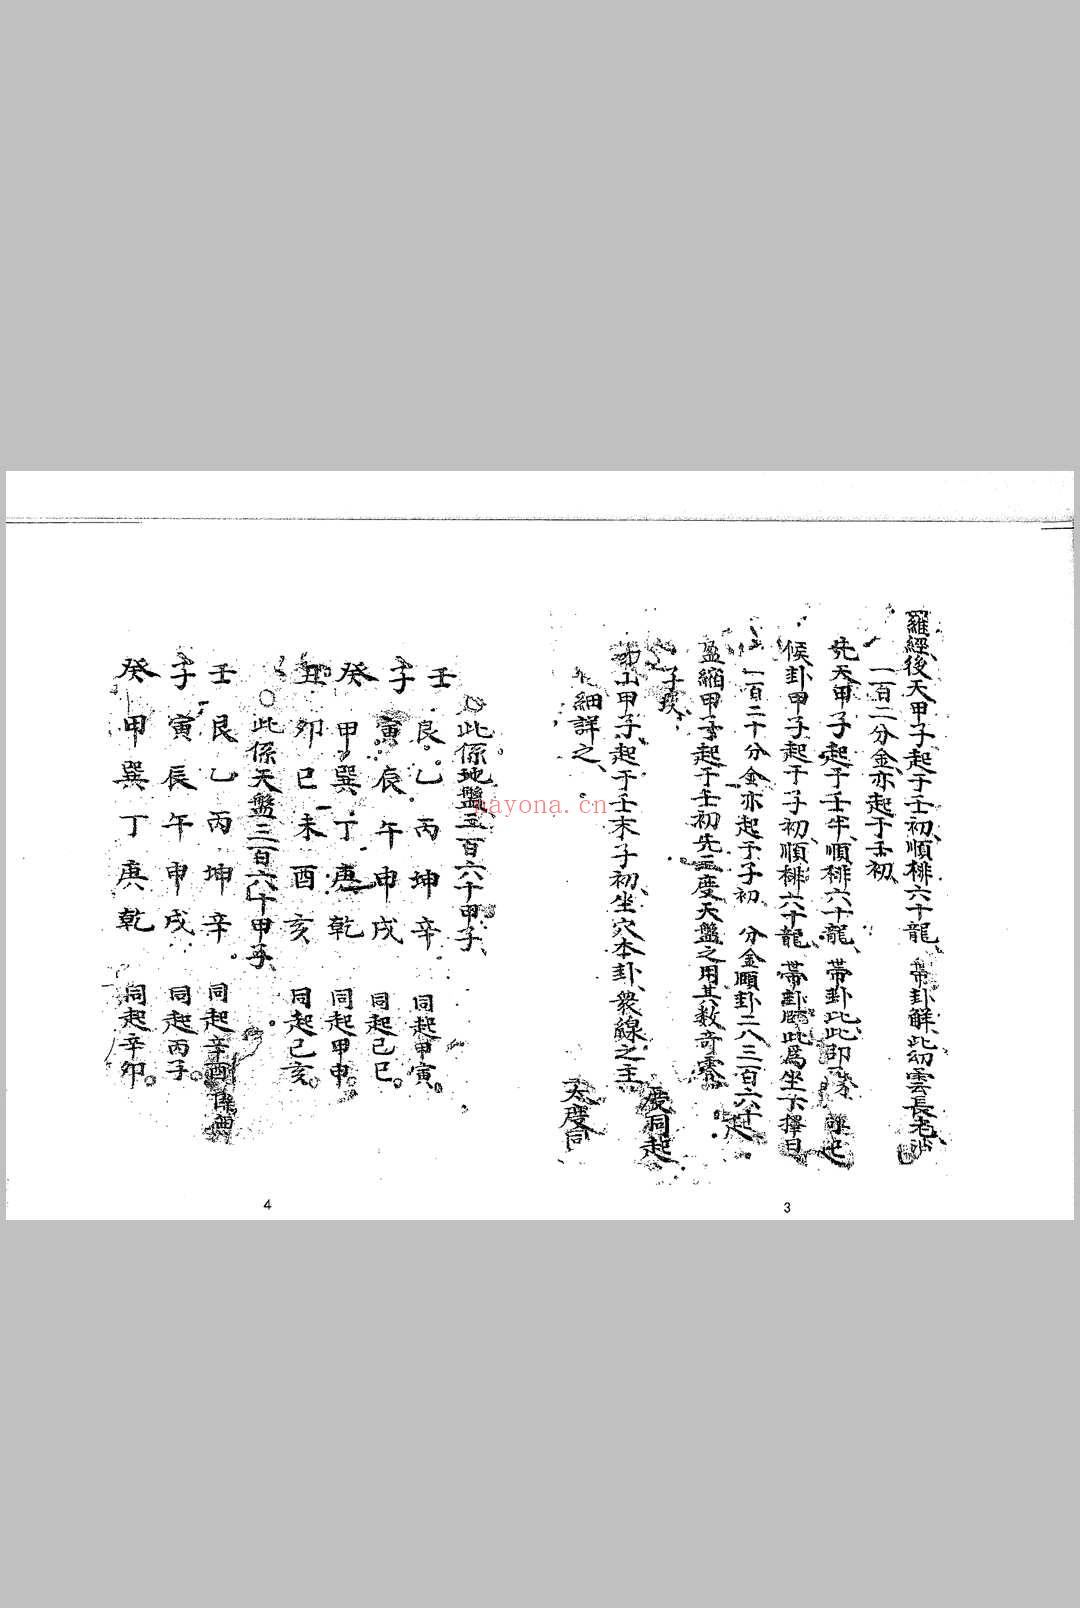 羅經後天甲子起于壬初順棑六十龍帶卦解此幼雲長老
一百二分金亦起于壬初
先天甲子起于壬半順棑六十龍帶卦比此即
候卦甲子起于子初順棑六十龍帶卦此為坐下擇日
一百二十分金亦起于子初 分金順卦二八三百六十
盈縮甲子起于壬初先三度天盤之用其数奇零
山甲子起于壬末子初坐穴本卦衆線之主
度同起
細詳之
同
3
○此係地盤五百六十甲子
壬艮乙丙坤辛 同起甲寅○
子寅辰午申戌 同起己巳○
癸甲巽丁庚乾 同起甲申○
丑卯巳未酉亥 同起己亥○
○此係天盤三百六十甲子
壬艮乙丙坤辛 同起辛酉
子寅辰午申戌 同起丙子○
癸甲巽丁庚乾 同起辛卯○
4
nayona.cn